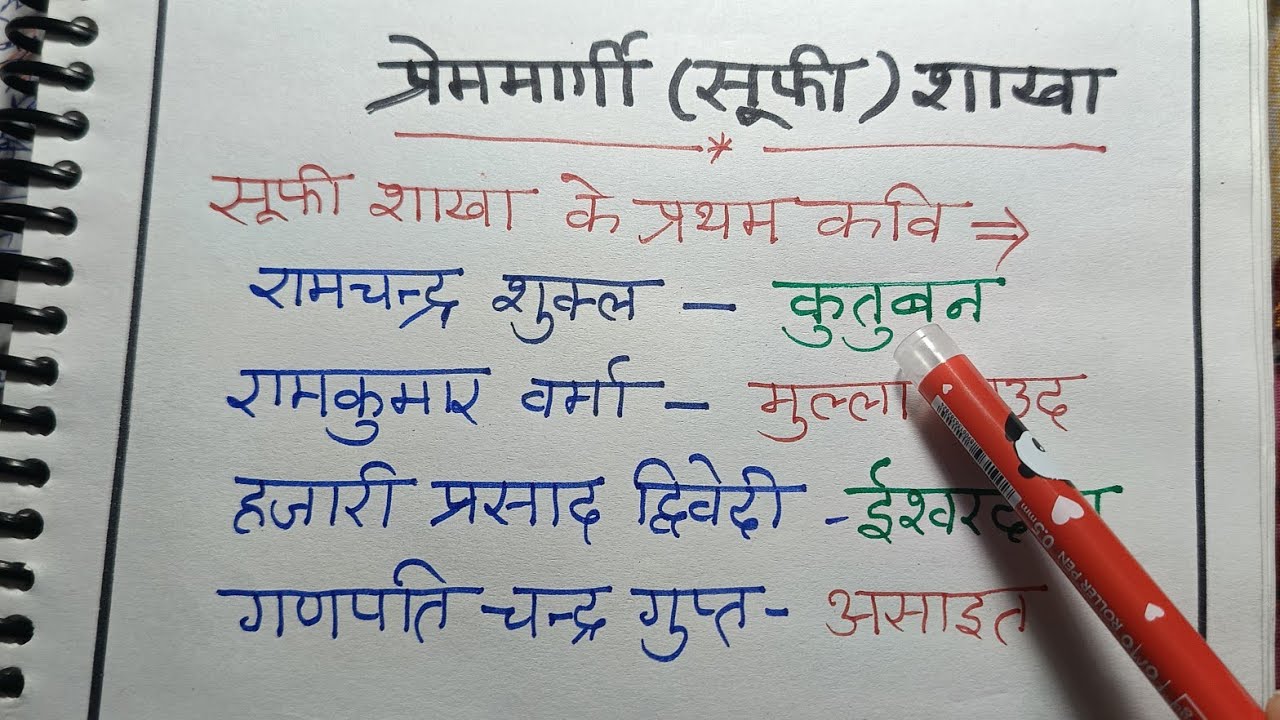 प्रेममार्गी (सूफी) शाखा
सूफी शाखा के प्रथम कवि ⇒
रामचन्द्र शुक्ल – कुतुबन
रामकुमार वर्मा – मुल्ला
हजारी प्रसाद द्विवेदी -
गणपति चन्द्र गुप्त- असाइत
0.5mm ROLLER PEN